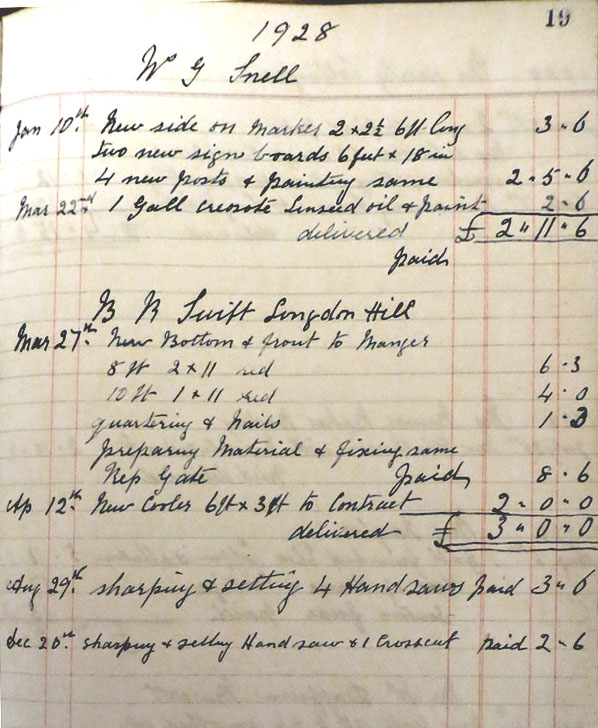 19
1928
Wm G Snell
Jan 10th New side on Market 2 x 2½ 6ft long 3 - 6
two new sign boards 6 feet x 18 in
4 new posts & painting same 2 - 5 - 6
Mar 22nd 1 Gall creosote Linseed oil & paint 2 - 6
delivered £ 2 " 11 - 6
paid
B R Swift Longdon Hill
Mar 27th New Bottom & front to Manger
8 ft 2 x 11 red 6 - 3
10 ft 1 x 11 red 4 - 0
quartering & nails 1 - 3
preparing Material & fixing same
Rep Gate paid 8 - 6
Ap 12th New Cooler 6ft x 3ft to Contract 2 - 0 - 0
delivered £ 3 " 0 - 0
Aug 29th sharping & setting 4 Hand saws paid 3 - 6
Dec 20th sharping & setting Hand saw & 1 Crosscut paid 2 - 6